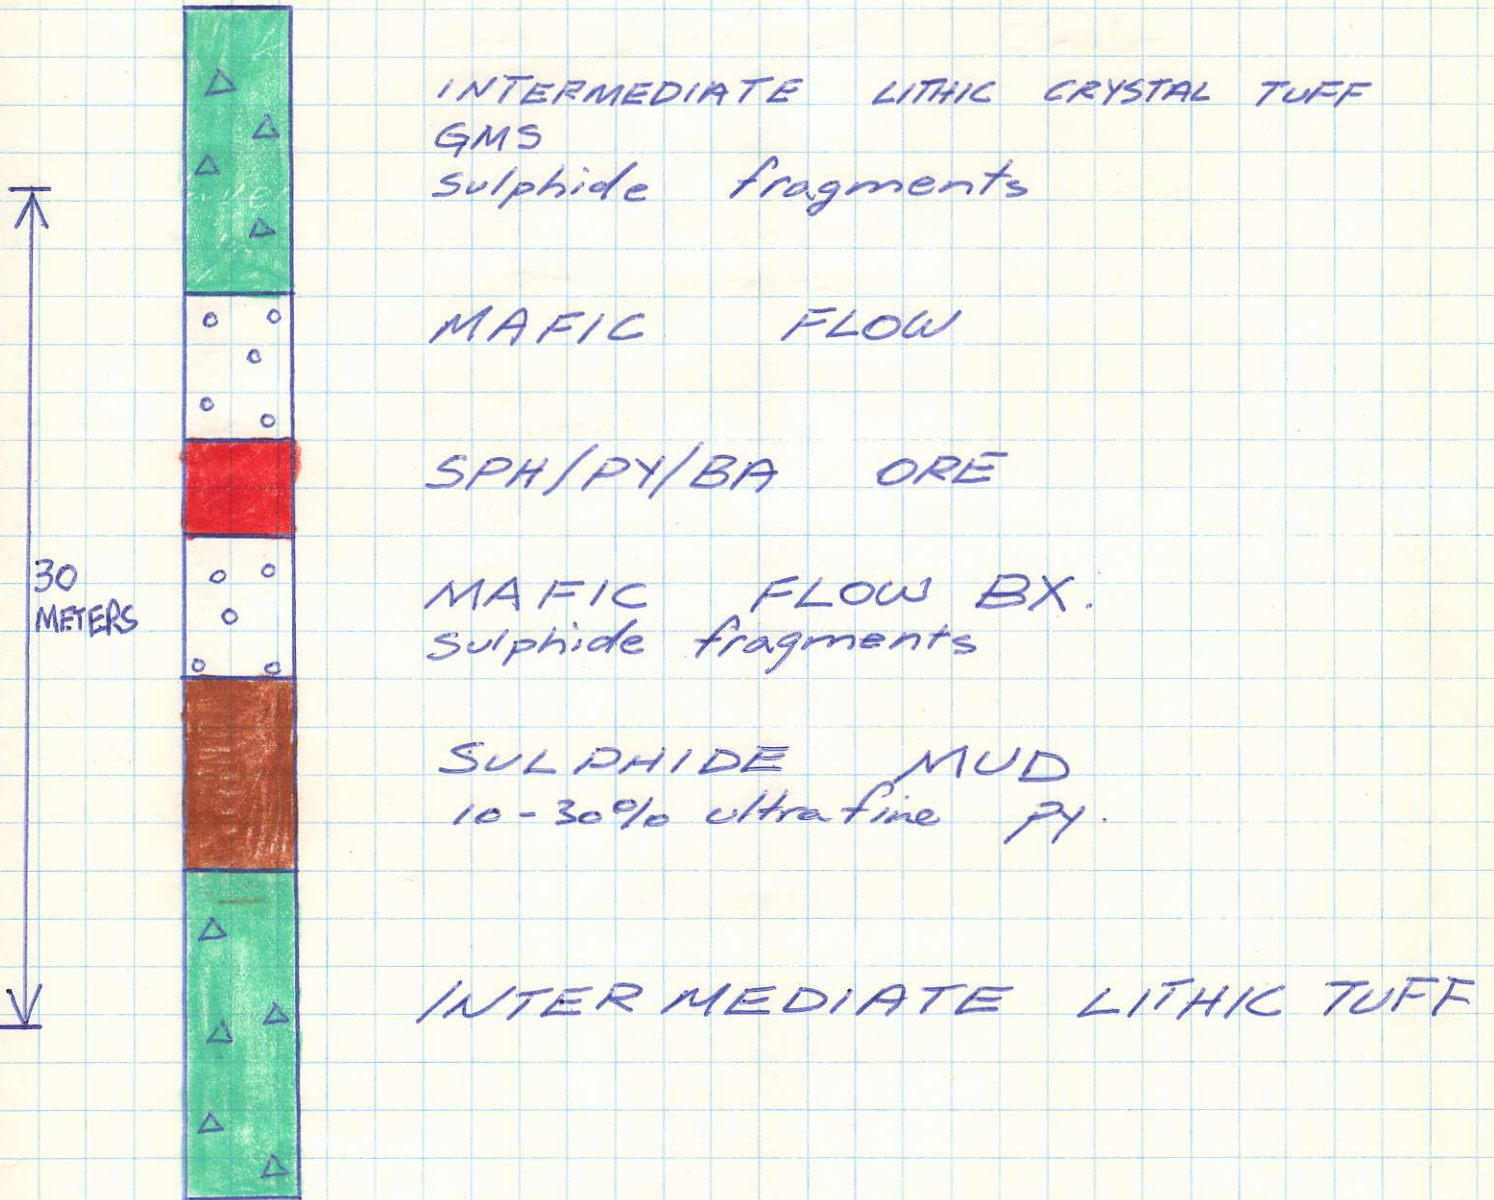 INTERMEDIATE LITHIC CRYSTAL TUFF
GMS
sulphide fragments
MAFIC FLOW
SPH/PY/BA ORE
30
METERS
MAFIC FLOW BX.
sulphide fragments
SULPHIDE MUD
10-30% ultrafine py.
INTERMEDIATE LITHIC TUFF